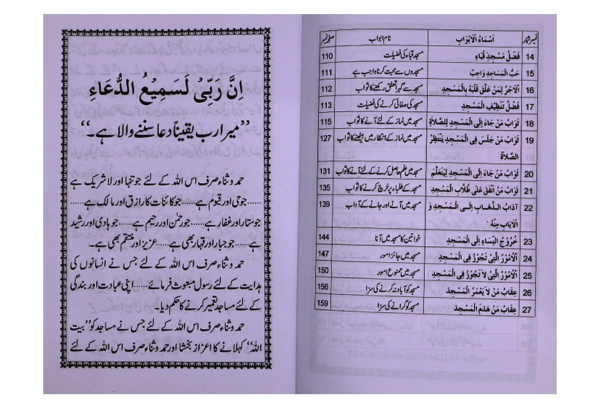 اِنَّ رَبِّیْ لَسَمِیْعُ الدُّعَاءِ
’’میرا رب یقینًا دعا سننے والا ہے۔‘‘
حمد و ثناء صرف اس اللہ کے لئے جو تنہا اور لا شریک ہے
......جو حی و قیوم ہے......جو کائنات کا رازق اور مالک ہے......
جو ستار اور غفار ہے......جو رحمٰن اور رحیم ہے......جو ہادی اور رشید
ہے......جو جبار اور قہار بھی ہے......عزیز اور منتقم بھی ہے۔
حمد و ثناء صرف اس اللہ کے لئے جس نے انسانوں کی
ہدایت کے لئے رسول مبعوث فرمائے......اپنی عبادت اور بندگی
کے لئے مساجد تعمیر کرنے کا حکم دیا۔
حمد و ثناء صرف اس اللہ کے لئے جس نے مساجد کو ’’بیت
اللہ‘‘ کہلانے کا اعزاز بخشا اور حمد و ثناء صرف اس اللہ کے لئے
نمبر شمار اَسْمَاءُ الْاَبْوَابِ نام ابواب صفحہ نمبر
14 فَضْلُ مَسْجِدِ قُبَاءٍ مسجد قباء کی فضیلت 110
15 حُبُّ الْمَسَاجِدِ وَاجِبٌ مسجدوں سے محبت کرنا واجب ہے 111
16 اَلْاَجْرُ لِمَنْ عَلَّقَ قَلْبَهُ بِالْمَسْجِدِ مسجد سے گہرا تعلق رکھنے کا ثواب 112
17 فَضْلُ تَنْظِيْفِ الْمَسْجِدِ مسجد کی صفائی کرنے کی فضیلت 113
18 ثَوَابُ مَنْ جَاءَ اِلَى الْمَسْجِدِ لِلصَّلَاةِ مسجد میں نماز کے لئے آنے کا ثواب 115
19 ثَوَابُ مَنْ جَلَسَ فِى الْمَسْجِدِ يَنْتَظِرُ مسجد میں نماز کے انتظار میں بیٹھنے کا ثواب 127
الصَّلَاةَ
20 ثَوَابُ مَنْ جَاءَ اِلَى الْمَسْجِدِ لِيَتَعَلَّمَ مسجد میں علم حاصل کرنے کے لئے آنے کا ثواب 131
21 ثَوَابُ مَنْ اَنْفَقَ عَلٰى طُلَّابِ الْمَسْجِدِ مسجد کے طلباء پر خرچ کرنے کا ثواب 135
22 آدَابُ الذَّهَابِ اِلَى الْمَسْجِدِ وَ مسجد میں آنے اور جانے کے آداب 139
الْاِيَابِ مِنْهُ
23 خُرُوْجُ النِّسَاءِ اِلَى الْمَسْجِدِ خواتین کا مسجد میں آنا 144
24 اَلْاُمُوْرُ الَّتِىْ تَجُوْزُ فِى الْمَسْجِدِ مسجد میں جائز امور 147
25 اَلْاُمُوْرُ الَّتِىْ لَا تَجُوْزُ فِى الْمَسْجِدِ مسجد میں ممنوع امور 150
26 عِقَابُ مَنْ لَا يَعْمُرُ الْمَسْجِدَ مسجد کو آباد نہ کرنے کی سزا 156
27 عِقَابُ مَنْ هَدَمَ الْمَسْجِدَ مسجد کو گرانے کی سزا 159